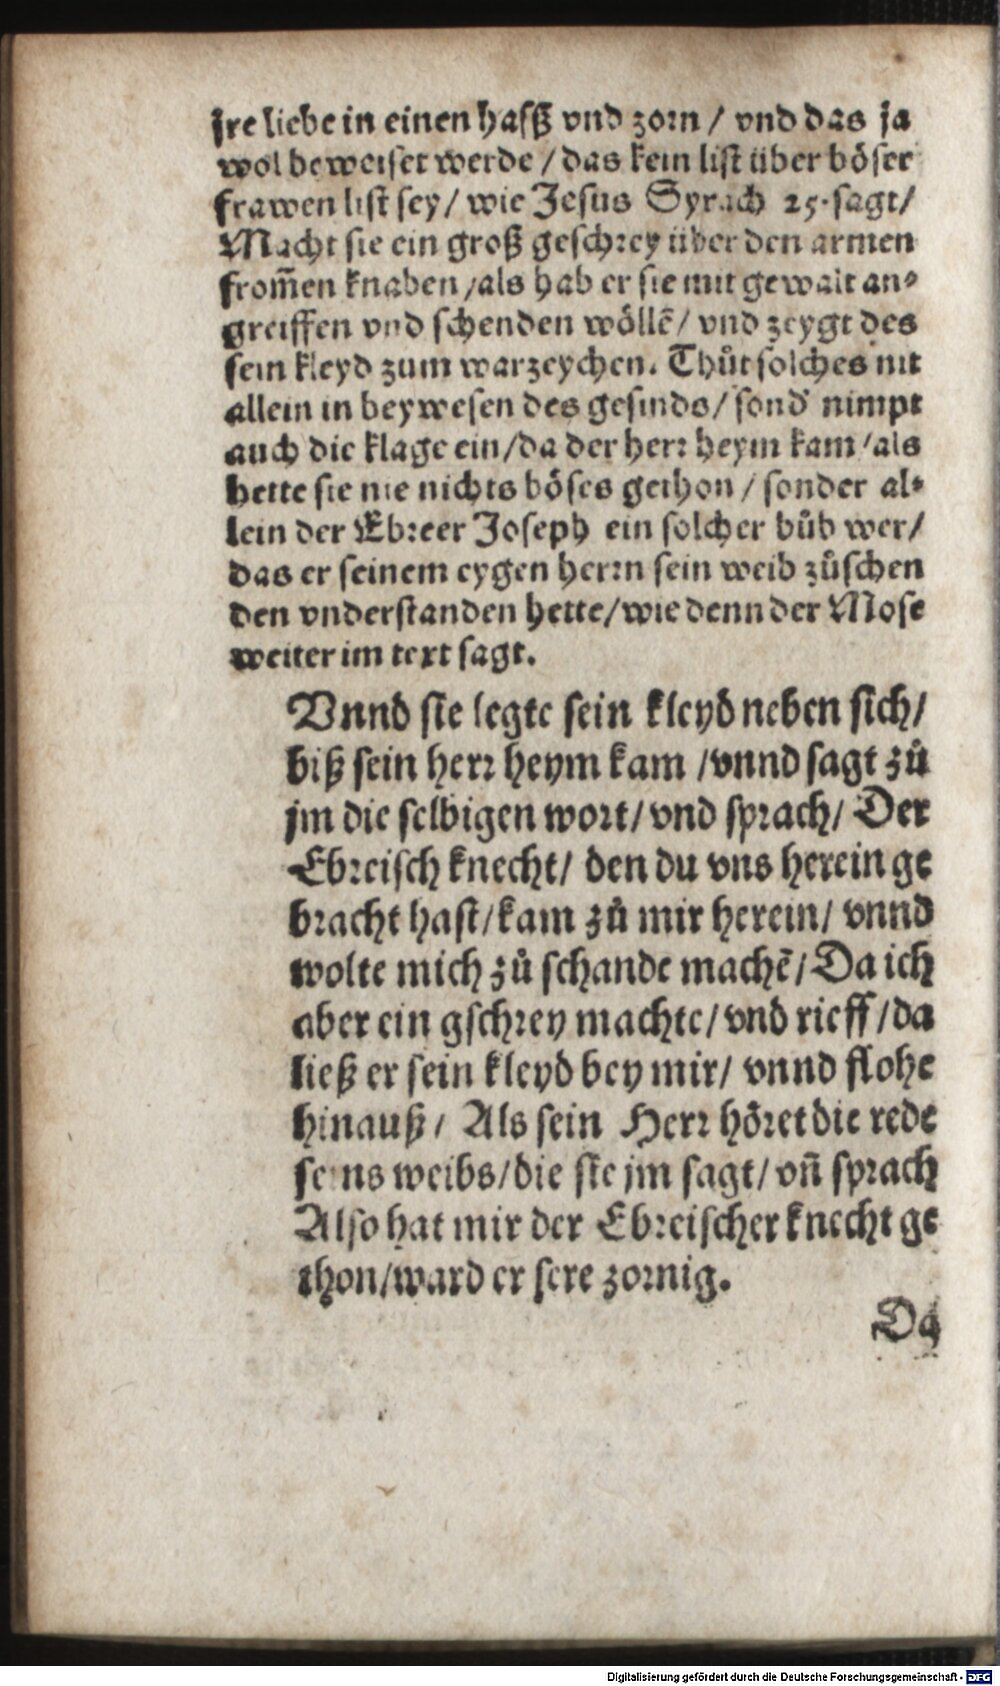 jre liebe in einen haſſz vnd zorn / vnd das ja
wol beweiſet werde / das kein liſt über böſer
frawen liſt ſey / wie Jeſus Syrach 25. ſagt /
Macht ſie ein groß geſchrey über den armen
from̃en knaben / als hab er ſie mit gewalt an⸗
greiffen vnd ſchenden wöllẽ / vnd zeygt des
ſein kleyd zum warzeychen. Thůt ſolches nit
allein in beyweſen des geſinds / ſond' nimpt
auch die klage ein / da der herr heym kam / als
hette ſie nie nichts böſes gethon / ſonder al⸗
lein der Ebreer Joſeph ein ſolcher bůb wer /
das er ſeinem eygen herrn ſein weib zůſchen
den vnderſtanden hette / wie denn der Moſe
weiter im text ſagt.
Vnnd ſie legte ſein kleyd neben ſich /
biß ſein herr heym kam / vnnd ſagt zů
jm die ſelbigen wort / vnd ſprach / Der
Ebreiſch knecht / den du vns herein ge
bracht haſt / kam zů mir herein / vnnd
wolte mich zů ſchande machẽ / Da ich
aber ein gſchrey machte / vnd rieff / da
ließ er ſein kleyd bey mir / vnnd flohe
hinauß / Als ſein Herr höret die rede
ſeins weibs / die ſie jm ſagt / vñ ſprach
Alſo hat mir der Ebreiſcher knecht ge
thon / ward er ſere zornig.
Da
Digitalisierung gefördert durch die Deutsche Forschungsgemeinschaft - DFG